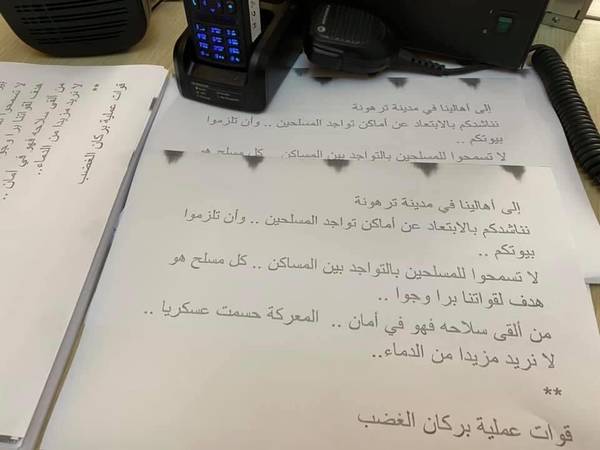 إلى أهالينا في مدينة ترهونة
نناشدكم بالابتعاد عن أماكن تواجد المسلحين .. وأن تلزموا
بيوتكم ..
لا تسمحوا للمسلحين بالتواجد بين المساكن .. كل مسلح هو
إلى أهالينا في مدينة ترهونة
نناشدكم بالابتعاد عن أماكن تواجد المسلحين .. وأن تلزموا
بيوتكم ..
لا تسمحوا للمسلحين بالتواجد بين المساكن .. كل مسلح هو
هدف لقواتنا برا وجوا ..
من ألقى سلاحه فهو في أمان .. المعركة حسمت عسكريا ..
لا نريد مزيدا من الدماء..
**
قوات عملية بركان الغضب
لا تسمحوا
هدف لقواتنا برا وجوا
من ألقى سلاحه فهو في أمان ..
لا نريد مزيدا من الدماء..
**
قوات عملية بركان الغضب